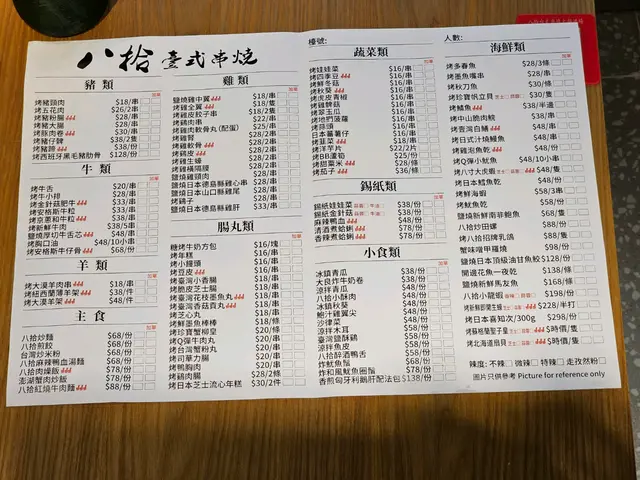 八拾 臺式串燒
豬類
烤豬頸肉 $18/串
烤五花肉 $26/2串
烤豬粉腸 $28/串
烤豬大腸 $28/串
烤豚肉卷 $30/串
烤豬仔髀 $38/2隻
烤豬蹄 $38/份
烤西班牙黑毛豬肋骨 $128/份
牛類
烤牛舌 $20/串
烤牛小排 $28/串
烤金針菇肥牛 $33/串
烤安格斯牛粒 $33/串
烤京蔥和牛粒 $38/串
烤新鮮牛肉 $38/5串
鹽燒厚切牛舌芯 $48/串
烤胸口油 $48/10小串
烤安格斯牛仔骨 $68/份
羊類
烤大漠羊肉串 $18/串
烤紐西蘭薄羊架 $38/件
烤大漠羊架 $48/件
主食
八拾炒麵 $68/份
八拾煎餃 $68/份
台灣炒米粉 $68/份
八拾麻辣鴨血湯麵 $68/份
八拾肉燥飯 $78/份
澎湖蟹肉炒飯 $78/份
八拾紅燒牛肉麵 $88/份
雞類
鹽燒雞中翼 $18/串
烤雞全翼 $18/隻
烤雞皮餃子串 $18/2隻
烤雞肉串 $22/串
烤雞肉軟骨丸(配蛋) $25/串
烤雞腎 $28/串
烤雞軟骨 $28/串
烤雞皮 $28/串
烤雞生蠔 $28/串
鹽燒雞頸肉 $28/串
鹽燒日本德島縣雞心串 $28/串
鹽燒日本山口縣雞尾 $28/串
烤鷄子 $28/串
鹽燒日本德島縣雞肝 $33/串
腸丸類
糖烤牛奶方包 $16/塊
烤年糕 $16/串
烤小饅頭 $16/串
烤豆皮 $16/串
烤臺灣小香腸 $16/串
烤脆皮芝士腸 $18/串
烤臺灣花枝墨魚丸 $18/串
烤臺灣香菇貢丸 $18/串
烤芝心丸 $18/串
烤鮮墨魚棒棒 $18/條
烤珍寶蟹柳皇 $20/條
烤Q彈牛肉丸 $20/串
烤台灣蟹粉丸 $20/串
烤司華力腸 $20/串
烤鴨胸肉 $20/串
烤雞肉腸 $28/2條
烤日本芝士流心年糕 $30/2件
檯號:
蔬菜類
烤娃娃菜 $16/串
烤四季豆 $16/串
烤鮮冬菇 $16/串
烤秋葵 $16/串
烤虎皮青椒 $16/串
烤雞髀菇 $16/串
烤翠玉瓜 $16/串
烤地捫菠蘿 $16/串
烤蒜頭 $16/串
日本蕃薯仔 $16/串
烤韮菜 $18/串
烤洋芋片 $22/2片
烤BB蘆筍 $25/份
烤甜粟米 $28/條
烤茄子 $36/條
錫紙類
錫紙娃娃菜 $38/份
錫紙金針菇 $38/份
麻辣鴨血 $48/份
清酒煮蛤蜊 $78/份
香辣煮蛤蜊 $78/份
小食類
冰鎮青瓜 $38/份
大良炸牛奶卷 $38/份
涼拌皮蛋 $38/份
八拾小酥肉 $48/份
冰鎮秋葵 $48/份
鮑汁雞翼尖 $48/份
沙律菜 $48/份
涼拌木耳 $58/份
臺灣鹽酥雞 $58/份
涼拌魚皮 $58/份
八拾醉酒鴨舌 $58/份
炸魷魚鬚 $68/份
炸和風魷魚圈鬚 $78/份
香煎匈牙利鵝肝配法包 $138/份
人數:
海鮮類
烤多春魚 $28/3條
烤墨魚嘴串 $28/串
烤秋刀魚 $30/條
烤珍寶帆立貝 $30/隻
烤鱆魚 $38/半邊
烤中山脆肉鯇 $38/串
烤臺灣白鱔 $48/串
烤日式汁燒鰻魚 $48/串
烤雞泡魚乾 $48/份
烤Q彈小魷魚 $48/10小串
烤八寸大虎蝦 $48/隻
烤日本鱈魚乾 $48/份
烤鮮海蝦 $58/3串
烤魷魚乾 $58/串
鹽燒新鮮南非鮑魚 $68/隻
八拾炒田螺 $88/份
烤八拾招牌乳鴿 $88/隻
蟹味噌甲羅燒 $98/份
鹽燒日本頂級油甘魚鮫 $128/份
開邊花魚一夜乾 $138/條
鹽燒新鮮馬友魚 $168/條
八拾小龍蝦 $198/份
烤新鮮即開生蠔 $228/半打
烤日本喜知次/300g $298/份
烤蘇格蘭聖子皇 $時價/隻
烤北海道扇貝 $時價/隻
辣度: 不辣 微辣 特辣 走孜然粉
圖片只供參考 Picture for reference only